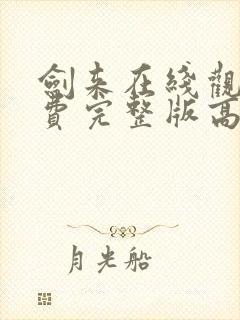 劍来在綫觀
費完整版高
月光船